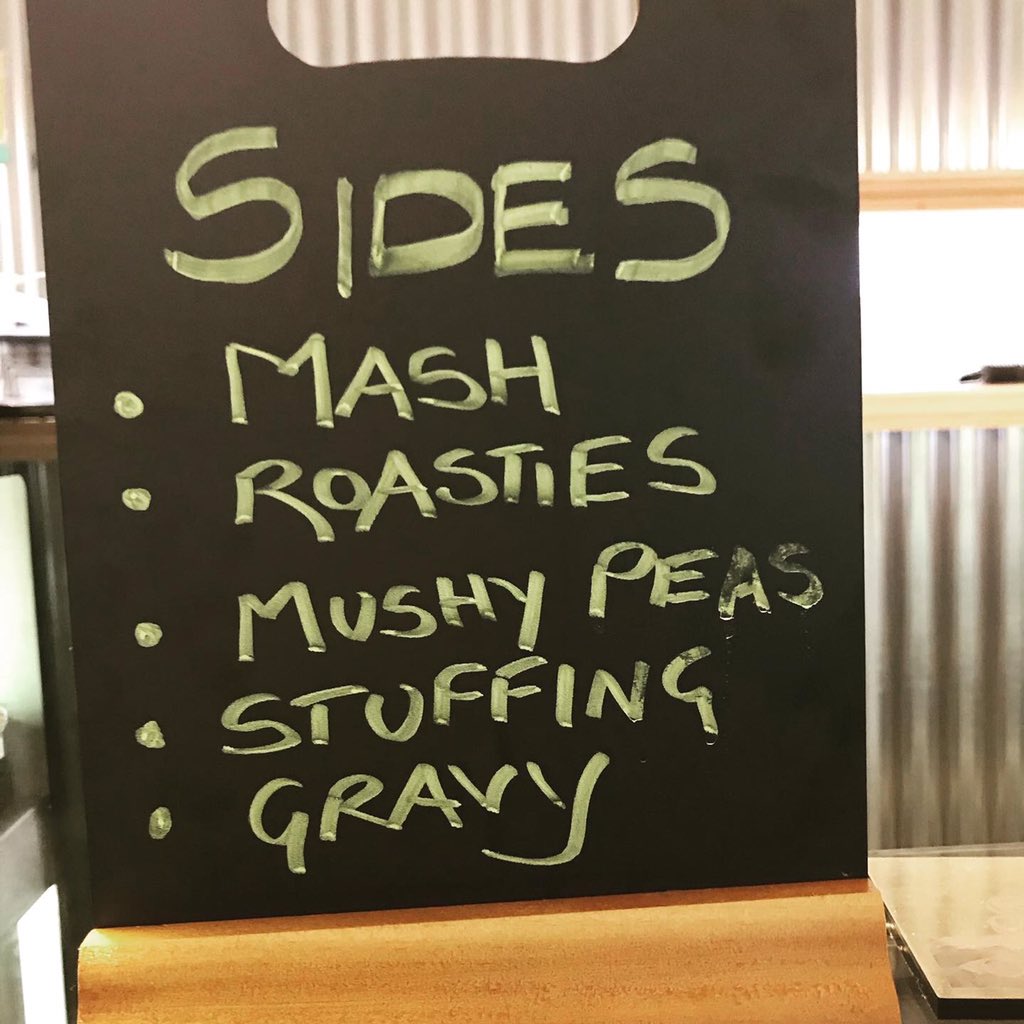 SIDES
• MASH
• ROASTIES
• MUSHY PEAS
• STUFFING
• GRAVY